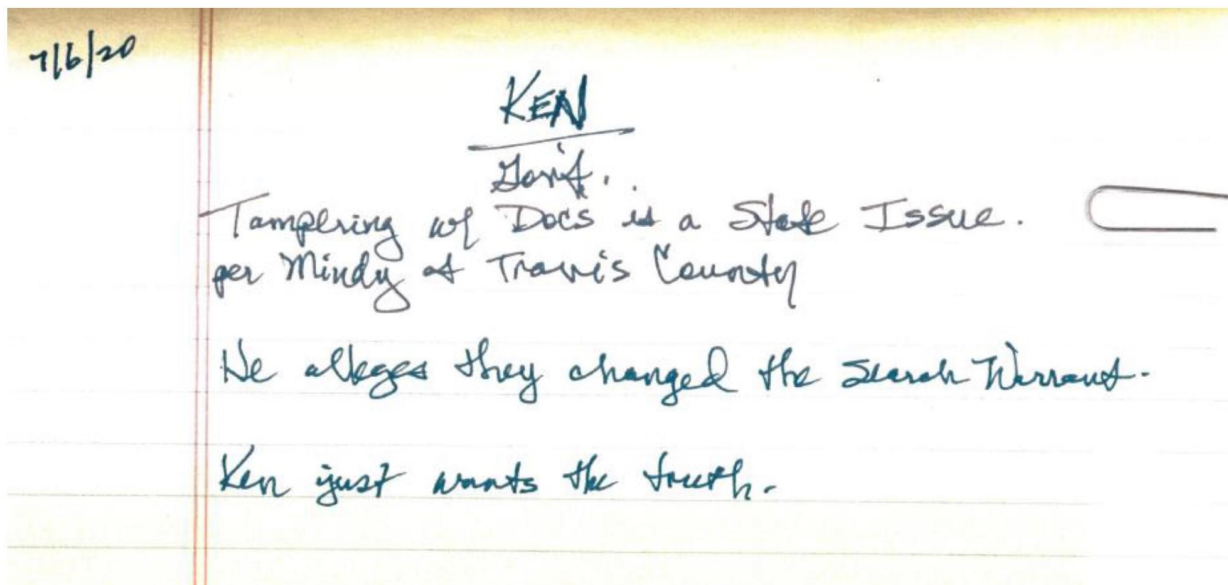 7/6/20
KEN
Gov't.
Tampering w/ Docs is a State Issue.
per Mindy at Travis County
He alleges they changed the Search Warrant.
Ken just wants the truth.